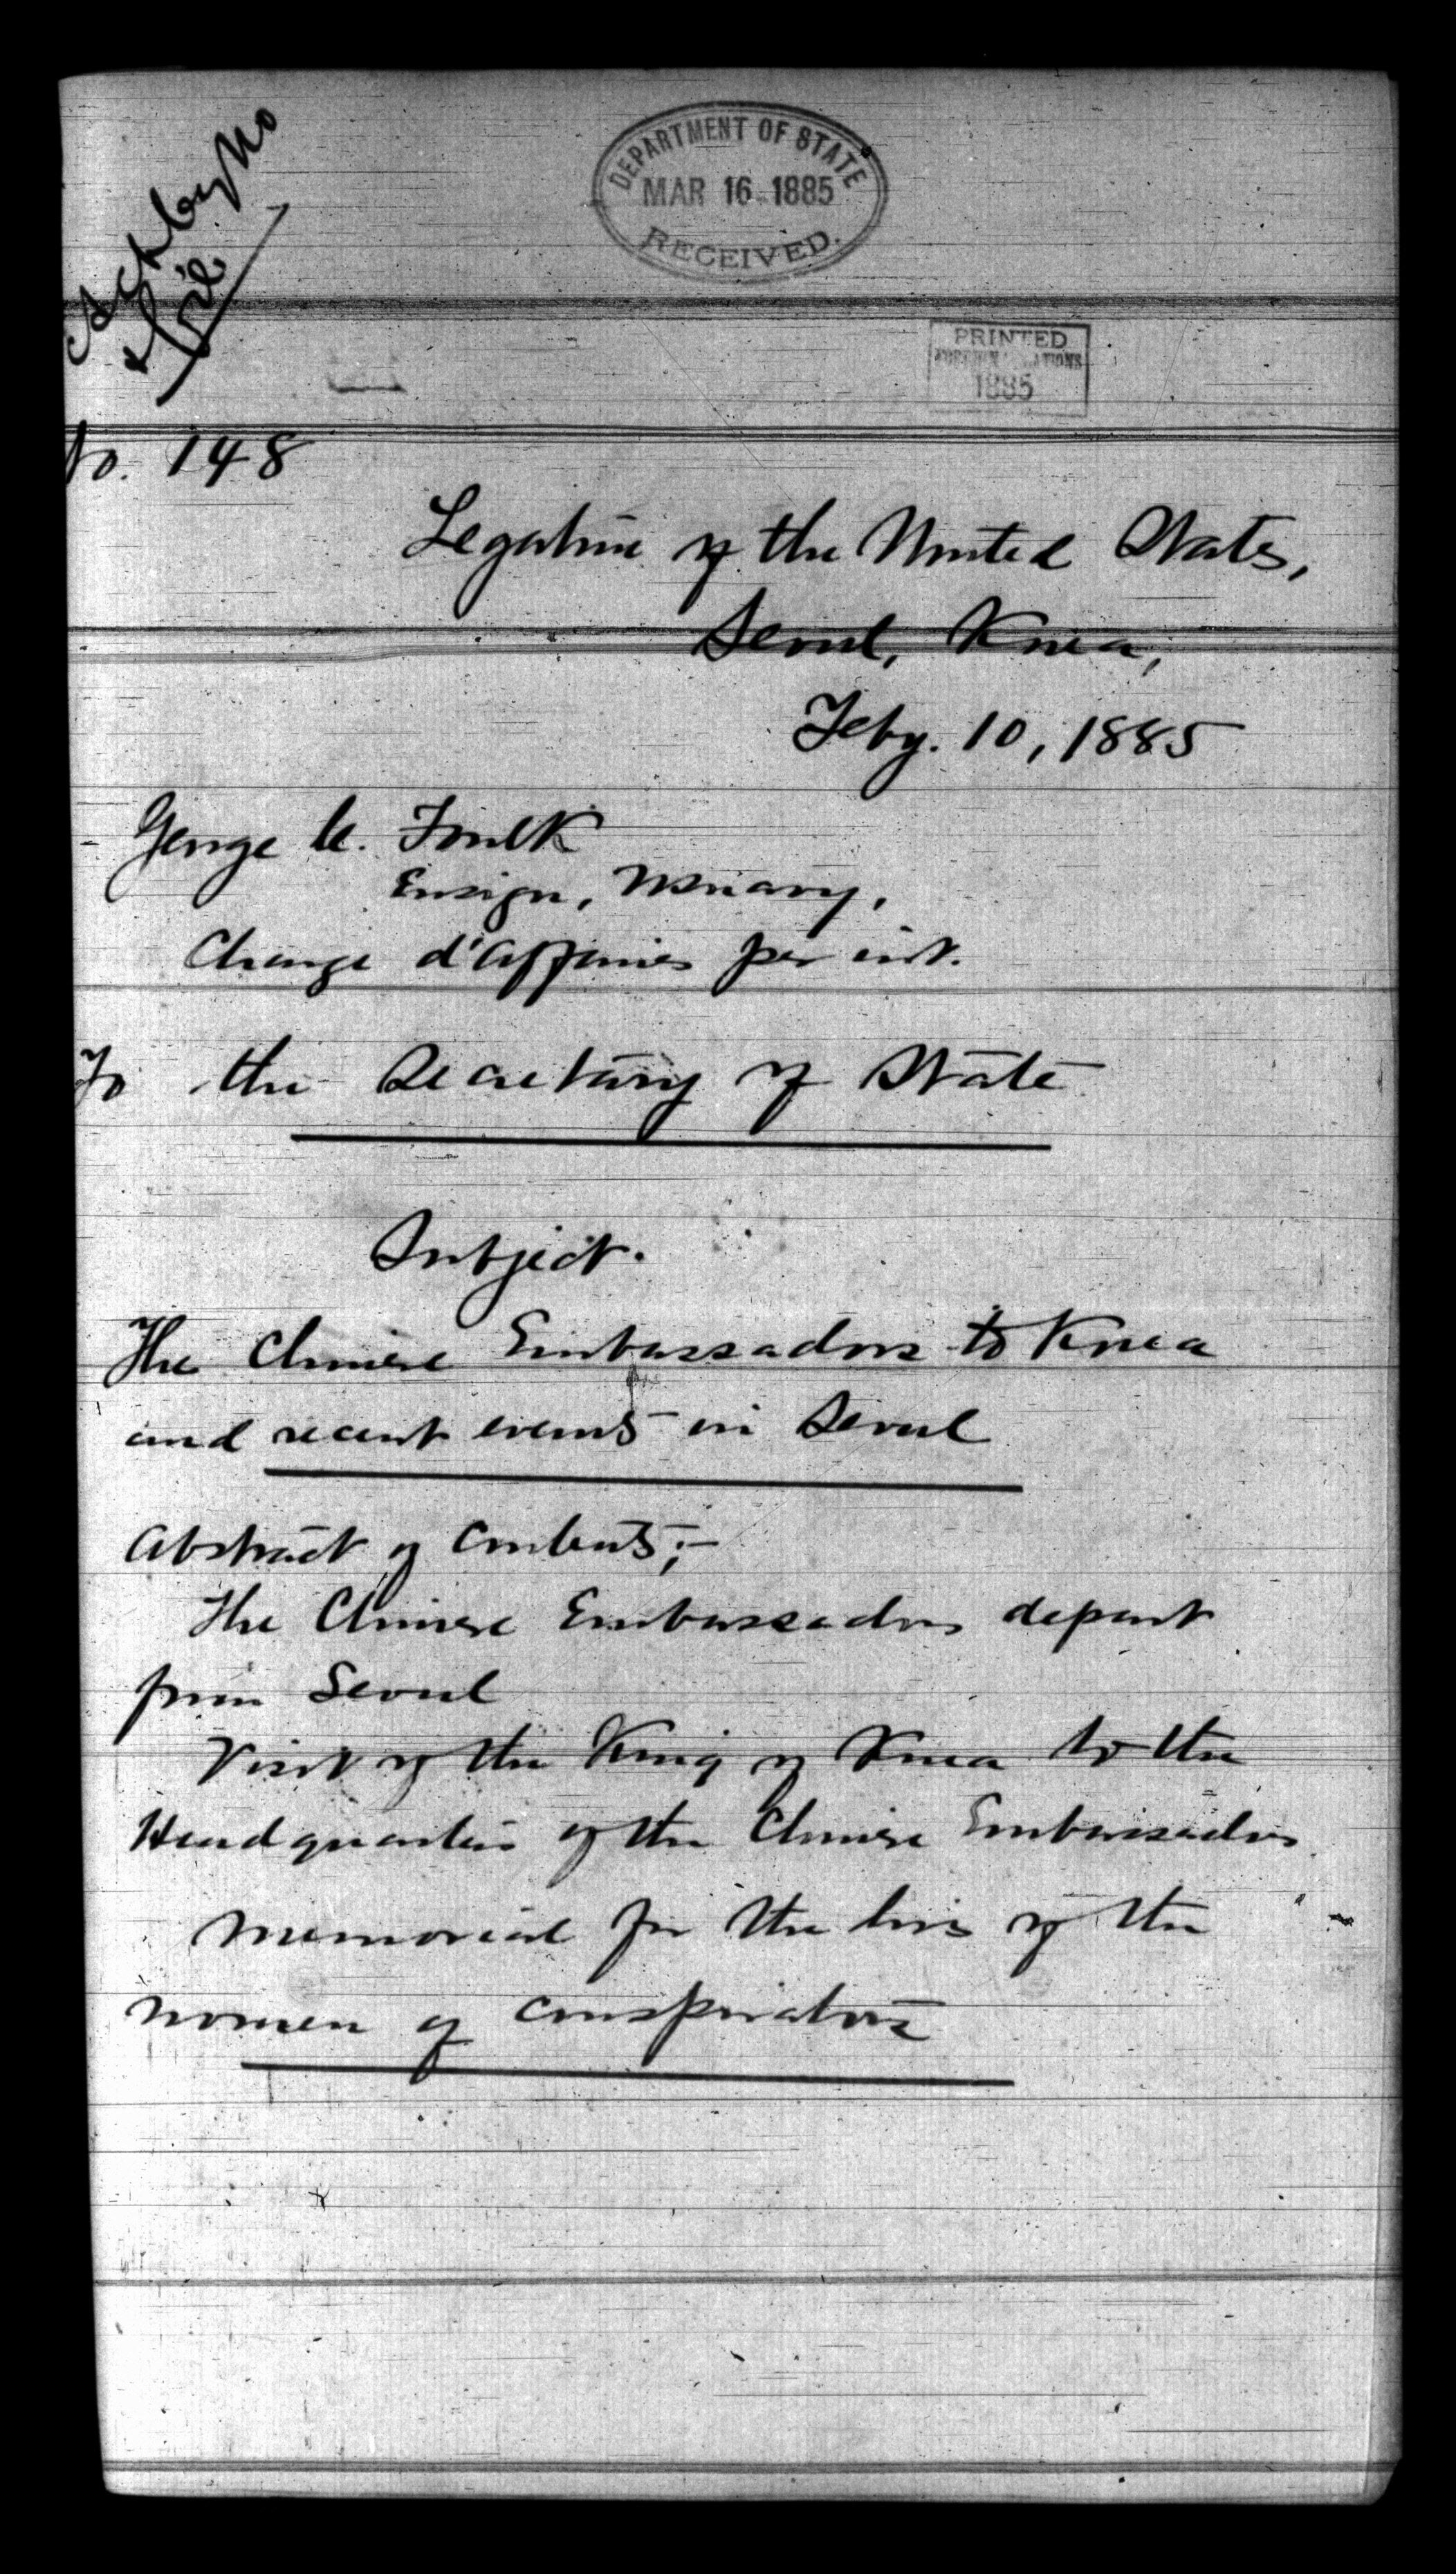 Ack by No
& file
DEPARTMENT OF STATE
MAR 16 1885
RECEIVED.
PRINTED
FOREIGN RELATIONS
1885
No. 148
Legation of the United States,
Seoul, Korea,
Feby. 10, 1885
George C. Foulk
Ensign, US Navy,
Charge d'affaires per int.
To the Secretary of State
Subject.
The Chinese Embassadors to Korea
and recent events in Seoul
Abstract of Contents;-
The Chinese Embassadors depart
from Seoul
Visit of the King of Korea to the
Headquarters of the Chinese Embassadors
Memorial for the lives of the
women of conspirators